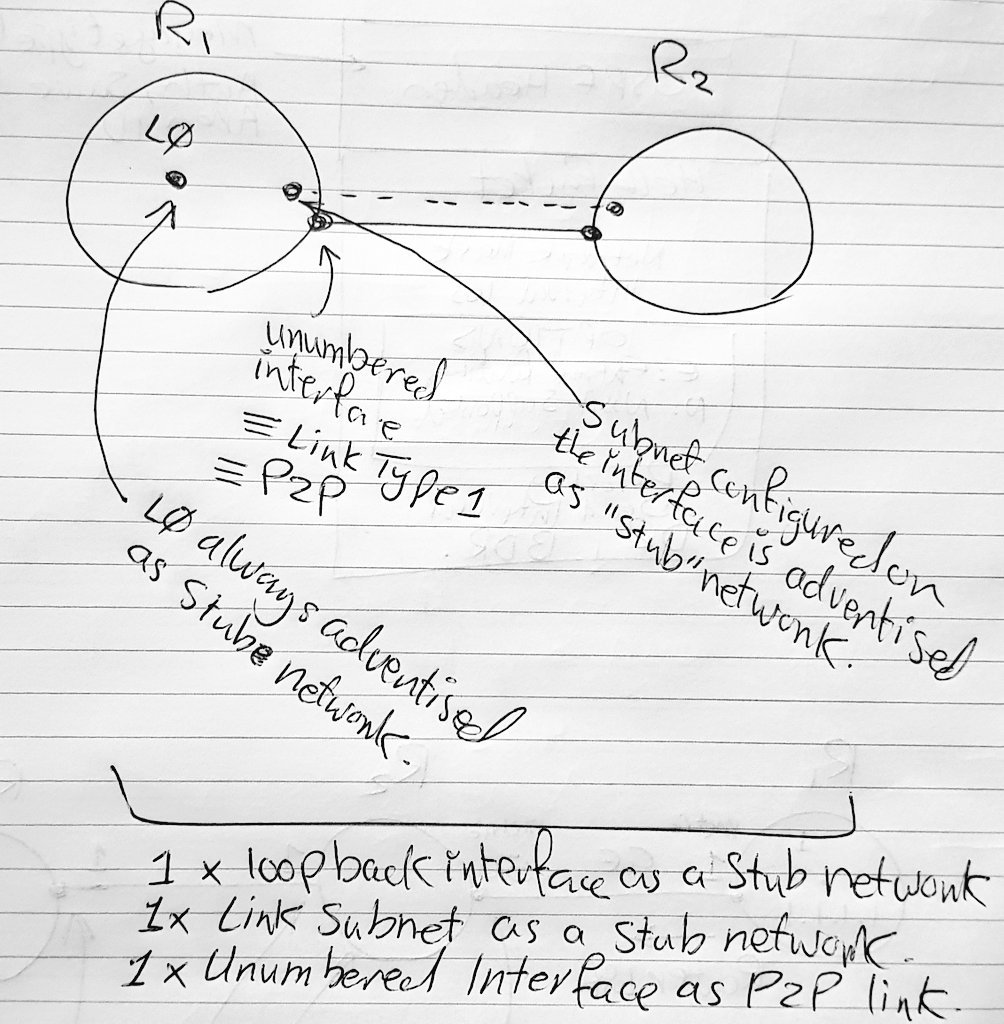 R1
R2
LØ
unumbered
interface
≡ Link Type 1
≡ P2P
Subnet configured on
the interface is advertised
as "stub" network.
LØ always advertised
as Stub network.
1 x loopback interface as a Stub network
1x Link Subnet as a Stub network.
1 x Unumbered Interface as P2P link.